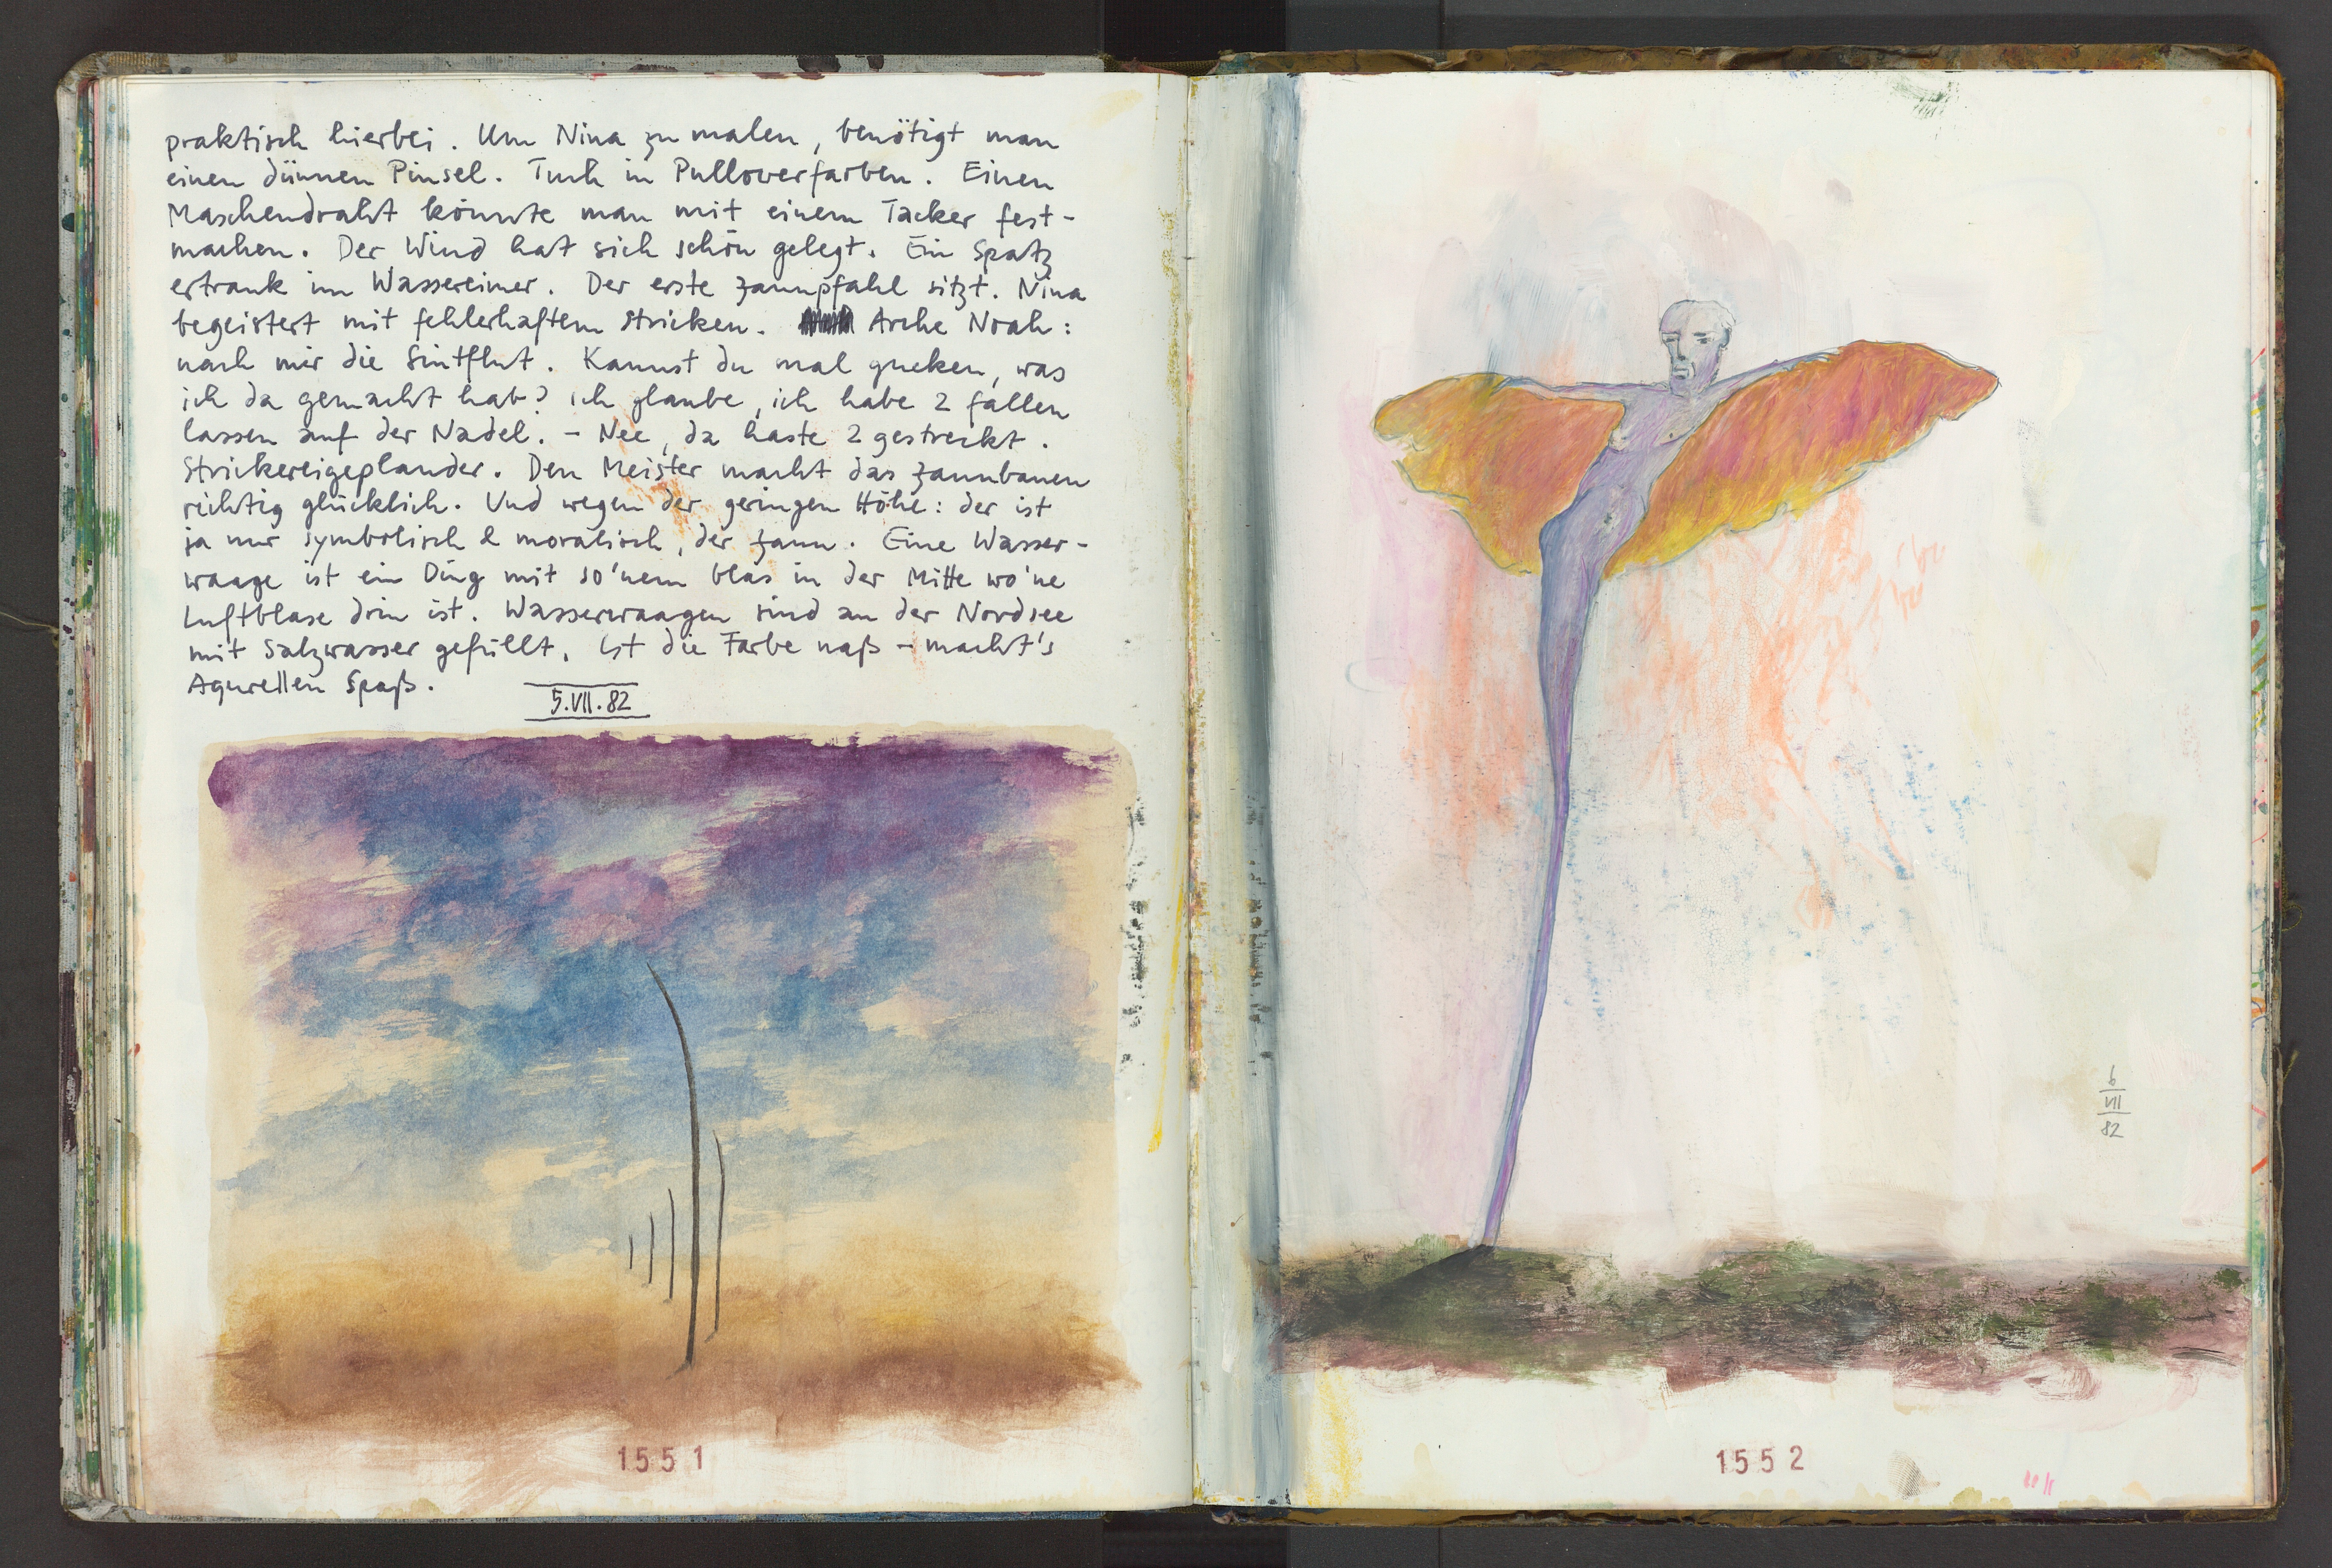 praktisch hierbei. Um Nina zu malen, benötigt man
einen dünnen Pinsel. Tusch in Pulloverfarben. Einen
Maschendraht könnte man mit einem Tacker fest-
machen. Der Wind hat sich schön gelegt. Ein Spatz
ertrank im Wassereimer. Der erste Zaunpfahl sitzt. Nina
begeistert mit fehlerhaftem Stricken. Arche Noah:
nach mir die Sintflut. Kannst du mal gucken, was
ich da gemacht hab? ich glaube, ich habe 2 fallen
lassen auf der Nadel. – Nee, da haste 2 gestreckt.
Strickereigeplauder. Den Meister macht das Zaunbauen
richtig glücklich. Und wegen der geringen Höhe: der ist
ja nur symbolisch & moralisch, der Zaun. Eine Wasser-
waage ist ein Ding mit so'nem Glas in der Mitte wo'ne
Luftblase drin ist. Wasserwaagen sind an der Nordsee
mit Salzwasser gefüllt. Ist die Farbe naß – macht's
Aqurellen Spaß.
5.VII.82
1551
6
VII
82
1552